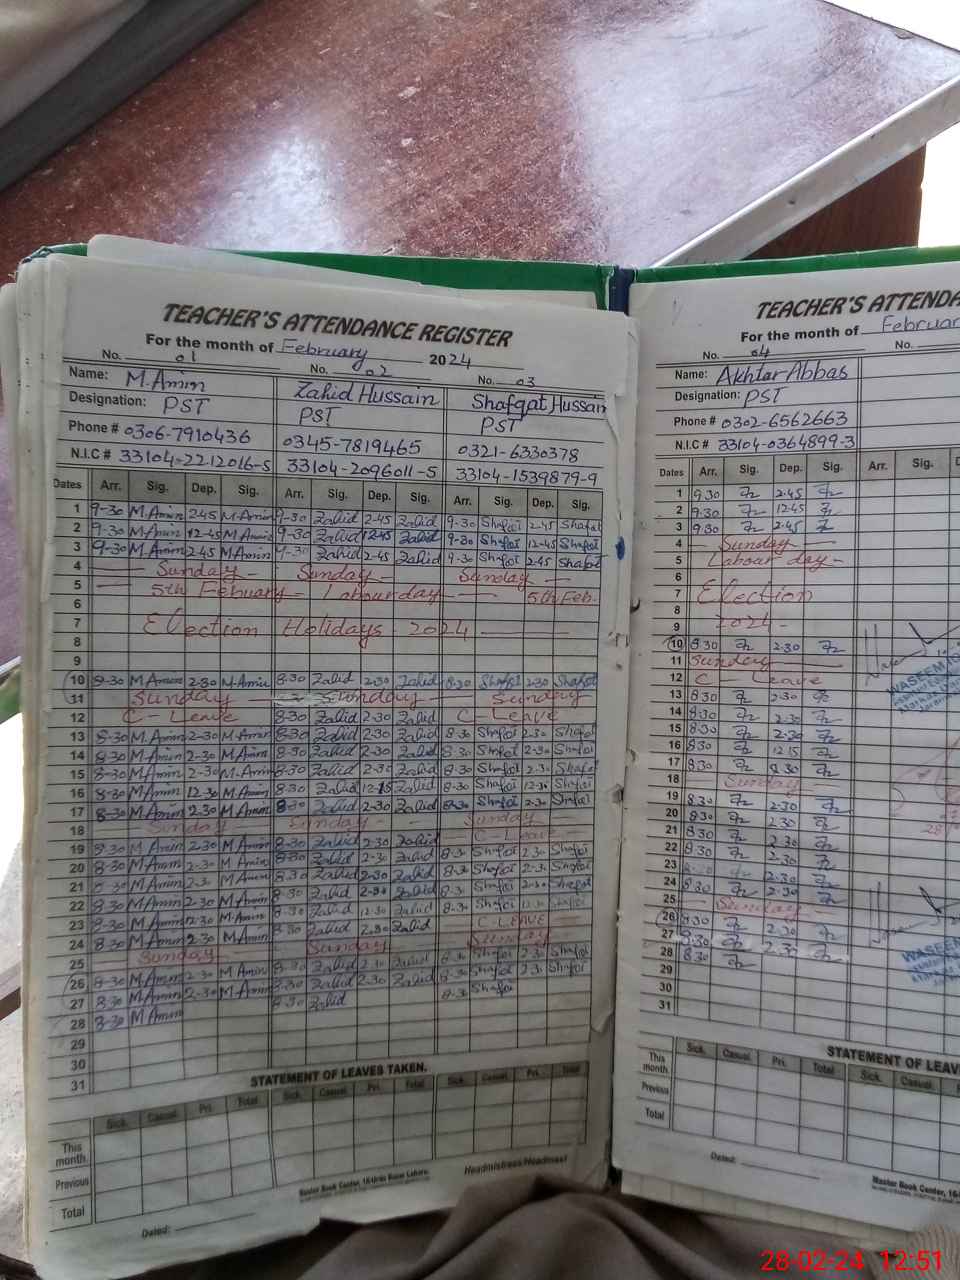 TEACHER'S ATTENDANCE REGISTER
For the month of February 2024
No. 01 No. 02 No. 03
Name: M.Amin Zahid Hussain Shafqat Hussain
Designation: PST PST PST
Phone # 0306-7910436 0345-7819465 0321-6330378
N.I.C # 33104-2212016-5 33104-2096011-5 33104-1539879-9
Dates Arr. Sig. Dep. Sig. Arr. Sig. Dep. Sig. Arr. Sig. Dep. Sig.
1 9-30 M.Amin 2-45 M.Amin 9-30 Zahid 2-45 Zahid 9-30 Shafqi 2-45 Shafqt
2 9-30 M.Amin 12-45 M.Amin 9-30 Zahid 12-45 Zahid 9-30 Shafqi 12-45 Shafqi
3 9-30 M.Amin 2-45 M.Amin 9-30 Zahid 2-45 Zahid 9-30 Shafqi 2-45 Shafqi
4 Sunday - Sunday - Sunday
5 5th Febuary - Labourday 5th Feb-
6
7 Election Holidays - 2024
8
9
10 8-30 M.Amin 2-30 M.Amin 8-30 Zahid 2-30 Zahid 8-30 Shafqi 2-30 Shafqt
11 Sunday Sunday Sunday
12 C-Leave 8-30 Zahid 2-30 Zahid C-Leave
13 8-30 M.Amin 2-30 M.Amin 8-30 Zahid 2-30 Zahid 8-30 Shafqi 2-30 Shafqi
14 8-30 M.Amin 2-30 M.Amin 8-30 Zahid 2-30 Zahid 8-30 Shafqi 2-30 Shafqi
15 8-30 M.Amin 2-30 M.Amin 8-30 Zahid 2-30 Zahid 8-30 Shafqi 2-30 Shafqi
16 8-30 M.Amin 12-30 M.Amin 8-30 Zahid 12-15 Zahid 8-30 Shafqi 12-30 Shafqi
17 8-30 M.Amin 2-30 M.Amin 8-30 Zahid 2-30 Zahid 8-30 Shafqi 2-30 Shafqi
18 Sunday Sunday - Sunday
19 8-30 M.Amin 2-30 M.Amin 8-30 Zahid 2-30 Zahid C-Leave
20 8-30 M.Amin 2-30 M.Amin 8-30 Zahid 2-30 Zahid 8-30 Shafqi 2-30 Shafqi
21 8-30 M.Amin 2-30 M.Amin 8-30 Zahid 2-30 Zahid 8-30 Shafqi 2-30 Shafqi
22 8-30 M.Amin 2-30 M.Amin 8-30 Zahid 2-30 Zahid 8-30 Shafqi 2-30 Shafqt
23 8-30 M.Amin 12-30 M.Amin 8-30 Zahid 12-30 Zahid 8-30 Shafqi 12-30 Shafqi
24 8-30 M.Amin 2-30 M.Amin 8-30 Zahid 2-30 Zahid C-LEAVE
25 Sunday Sunday Sunday
26 8-30 M.Amin 2-30 M.Amin 8-30 Zahid 2-30 Zahid 8-30 Shafqi 2-30 Shafqi
27 8-30 M.Amin 2-30 M.Amin 8-30 Zahid 2-30 Zahid 8-30 Shafqi 2-30 Shafqi
28 8-30 M.Amin 8-30 Zahid 8-30 Shafqi
29
30
31
STATEMENT OF LEAVES TAKEN.
Sick. Casual. Pri. Total Sick. Casual. Pri. Total Sick. Casual. Pri. Total
This month.
Previous
Total
Headmistress/Headmast
Master Book Center, 16-Urdu Bazar Lahore.
Dated:
TEACHER'S ATTENDA
For the month of Februar
No. 04 No.
Name: Akhtar Abbas
Designation: PST
Phone # 0302-6562663
N.I.C # 33104-0364899-3
Dates Arr. Sig. Dep. Sig. Arr. Sig. D
1 9.30 2.45
2 9.30 12.45
3 9.30 2.45
4 Sunday
5 Labour day-
6
7 Election
8
9 2024-
10 8.30 2.30
11 Sunday
12 C - Leave
13 8.30 2.30
14 8.30 2.30
15 8.30 2.30
16 8.30 12.15
17 8.30 2.30
18 Sunday
19 8.30 2.30
20 8.30 2.30
21 8.30 2.30
22 8.30 2.30
23
24 8.30 2.30
25 Sunday
26 8.30 2.30
27 8.30 2.30
28 8.30
29
30
31
WASEEM
WASEEM
STATEMENT OF LEAV
Sick. Casual. Pri. Total Sick. Casual.
This month.
Previous
Total
Dated:
Master Book Center, 16-
28-02-24 12:51